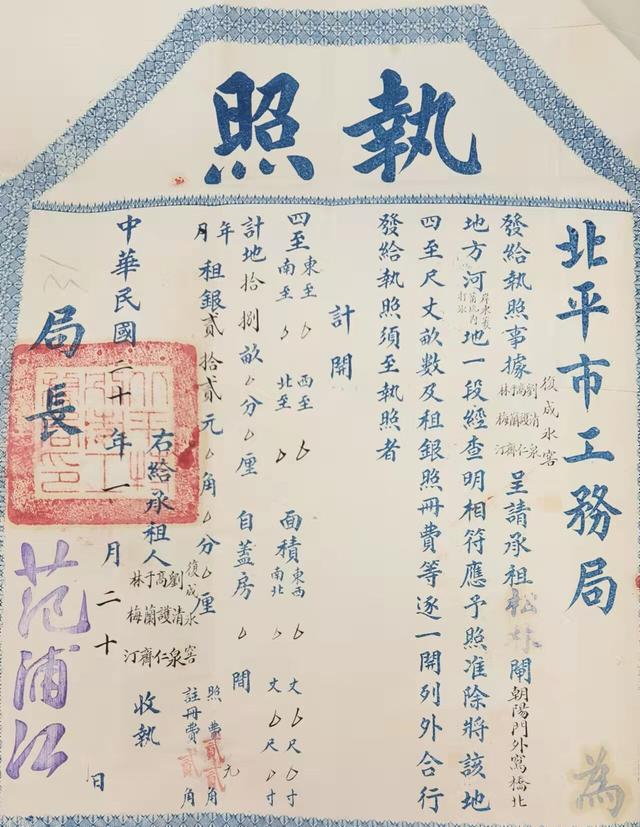 執照
北平市工務局為
發給執照事據復成冰窖劉清泉高護仁于蘭齊林梅汀呈請承租松林閘朝陽門外窩橋北
地方河岸東坑內打冰地一段經查明相符應予照准除將該地
四至尺丈畝數及租銀照冊費等逐一開列外合行
發給執照須至執照者
計開
四至東至0西至0南至0北至0面積東西0丈0尺0寸南北0丈0尺0寸
計地拾捌畝0分0厘自蓋房0間
年月租銀貳拾貳元0角0分0厘照費貳元貳角註冊費貳角
右給承租人復成冰窖劉清泉高護仁于蘭齊林梅汀收執
中華民國二十年一月二十日
局長范浦江